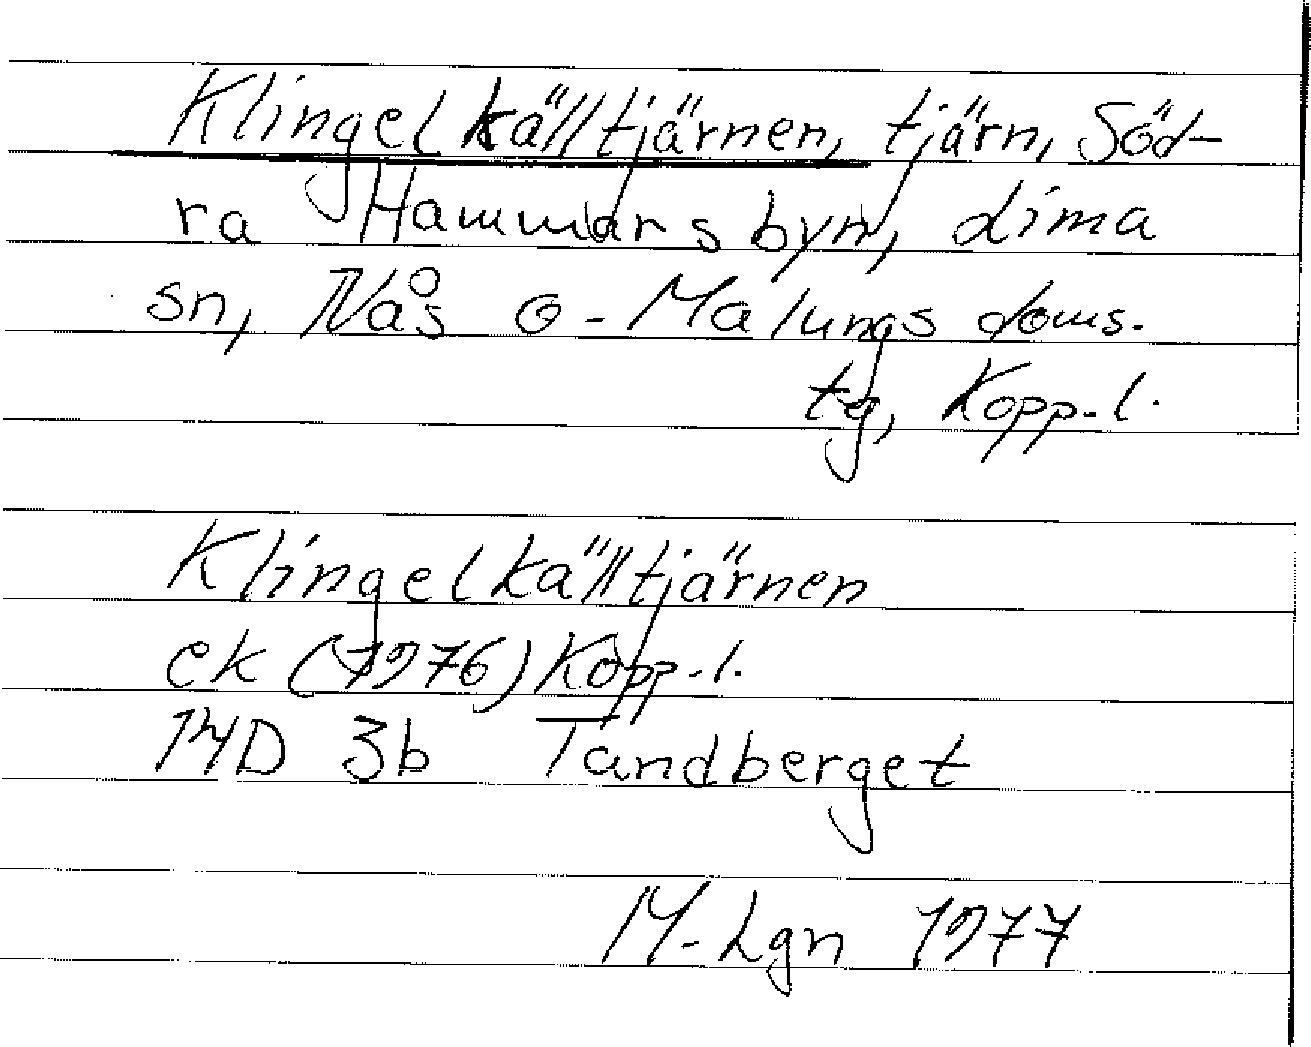 Klingelkälltjärnen, tjärn, Söd-
ra Hammarsbyn, Lima
sn, Nås o. Malungs doms.
tg, Kopp.l.
Klingelkälltjärnen
ek (1976) Kopp.l.
14D 3b Tandberget
M-Lgn 1977